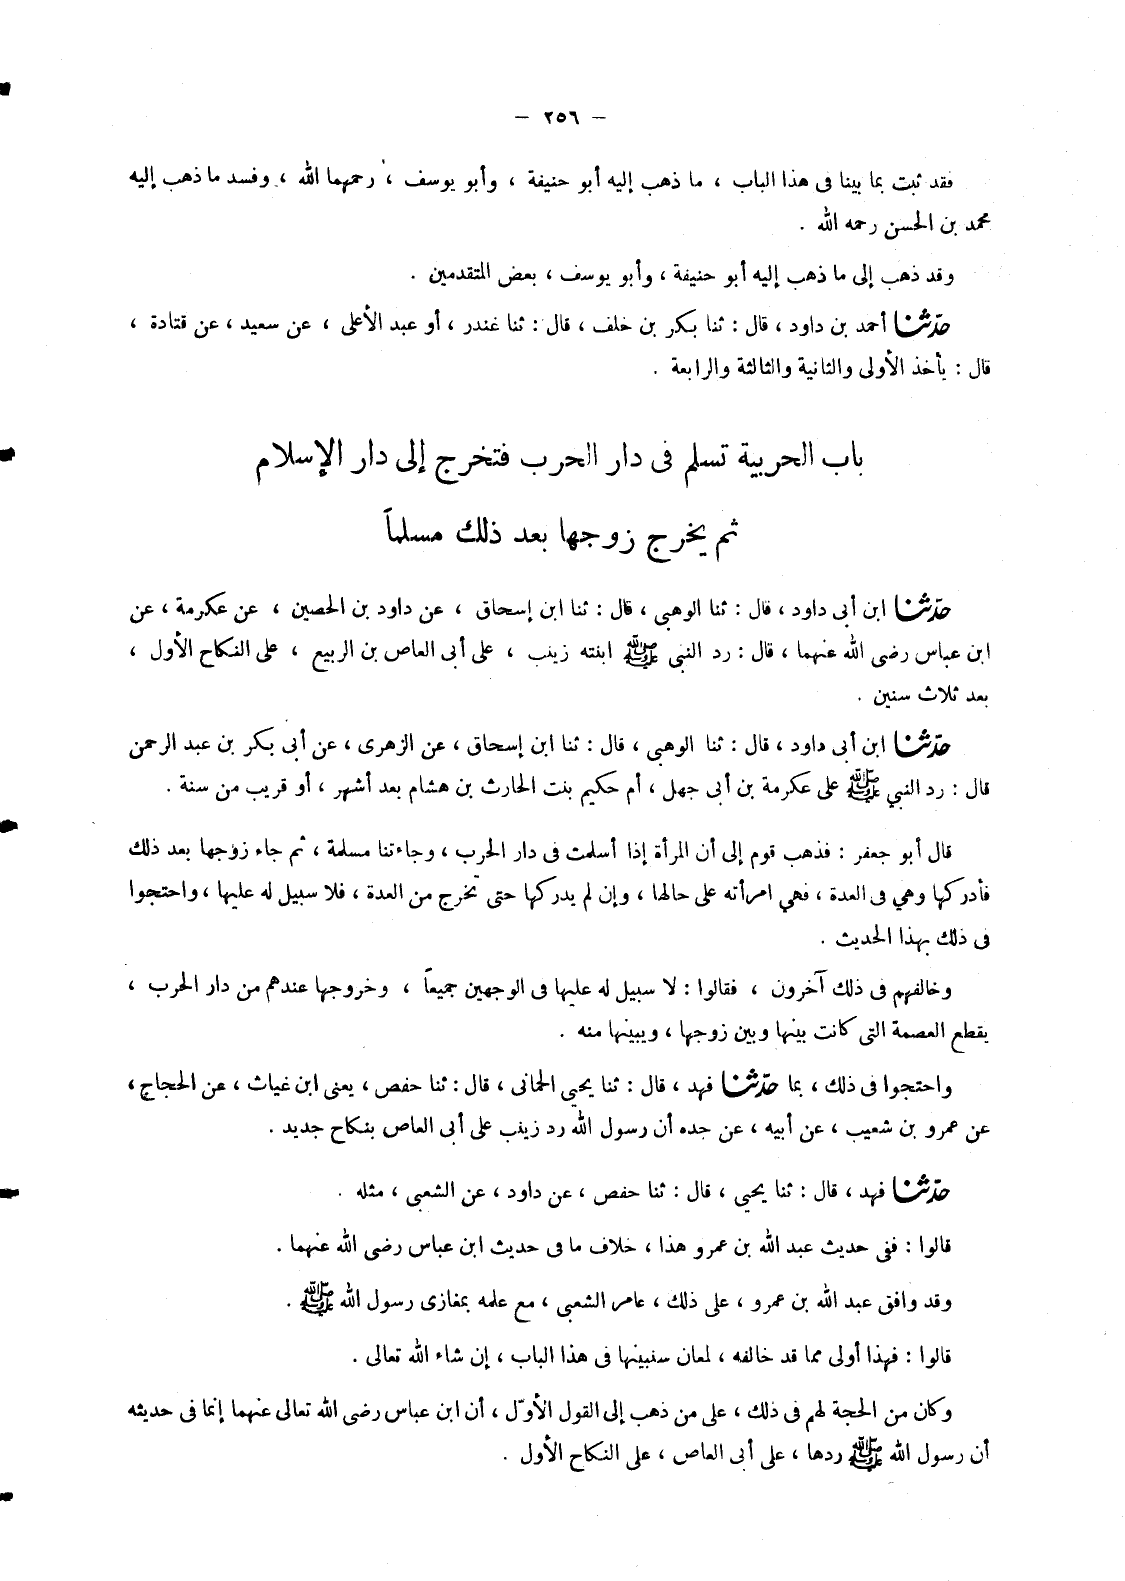 – ٢٥٦ –
فقد ثبت بما بينا فى هذا الباب ، ما ذهب إليه أبو حنيفة ، وأبو يوسف ، رحمهما الله ، وفسد ما ذهب إليه
محمد بن الحسن رحمه الله .
وقد ذهب إلى ما ذهب إليه أبو حنيفة ، وأبو يوسف ، بعض المتقدمين .
حدّثنا أحمد بن داود ، قال : ثنا بكر بن خلف ، قال : ثنا غندر ، أو عبد الأعلى ، عن سعيد ، عن قتادة ،
قال : يأخذ الأولى والثانية والثالثة والرابعة .
باب الحربية تسلم فى دار الحرب فتخرج إلى دار الإسلام
ثم يخرج زوجها بعد ذلك مسلماً
حدّثنا ابن أبى داود ، قال : ثنا الوهبى ، قال : ثنا ابن إسحاق ، عن داود بن الحصين ، عن عكرمة ، عن
ابن عباس رضى الله عنهما ، قال : رد النبي ﷺ ابنته زينب ، على أبى العاص بن الربيع ، على النكاح الأول ،
بعد ثلاث سنين .
حدّثنا ابن أبى داود ، قال : ثنا الوهبى ، قال : ثنا ابن إسحاق ، عن الزهرى ، عن أبى بكر بن عبد الرحمن
قال : رد النبي ﷺ على عكرمة بن أبى جهل ، أم حكيم بنت الحارث بن هشام بعد أشهر ، أو قريب من سنة .
قال أبو جعفر : فذهب قوم إلى أن المرأة إذا أسلمت فى دار الحرب ، وجاءتنا مسلمة ، ثم جاء زوجها بعد ذلك
فأدركها وهي فى العدة ، فهي امرأته على حالها ، وإن لم يدركها حتى تخرج من العدة ، فلا سبيل له عليها ، واحتجوا
فى ذلك بهذا الحديث .
وخالفهم فى ذلك آخرون ، فقالوا : لا سبيل له عليها فى الوجهين جميعاً ، وخروجها عندهم من دار الحرب ،
يقطع العصمة التى كانت بينها وبين زوجها ، ويبينها منه .
واحتجوا فى ذلك ، بما حدّثنا فهد ، قال : ثنا يحيى الحمانى ، قال : ثنا حفص ، يعنى ابن غياث ، عن الحجاج ،
عن عمرو بن شعيب ، عن أبيه ، عن جده أن رسول الله رد زينب على أبى العاص بنكاح جديد .
حدّثنا فهد ، قال : ثنا يحيى ، قال : ثنا حفص ، عن داود ، عن الشعبى ، مثله .
قالوا : ففى حديث عبد الله بن عمرو هذا ، خلاف ما فى حديث ابن عباس رضى الله عنهما .
وقد وافق عبد الله بن عمرو ، على ذلك ، عامر الشعبى ، مع علمه بمغازى رسول الله ﷺ .
قالوا : فهذا أولى مما قد خالفه ، لمعان سنبينها فى هذا الباب ، إن شاء الله تعالى .
وكان من الحجة لهم فى ذلك ، على من ذهب إلى القول الأوّل ، أن ابن عباس رضى الله تعالى عنهما إنما فى حديثه
أن رسول الله ﷺ ردها ، على أبى العاص ، على النكاح الأول .